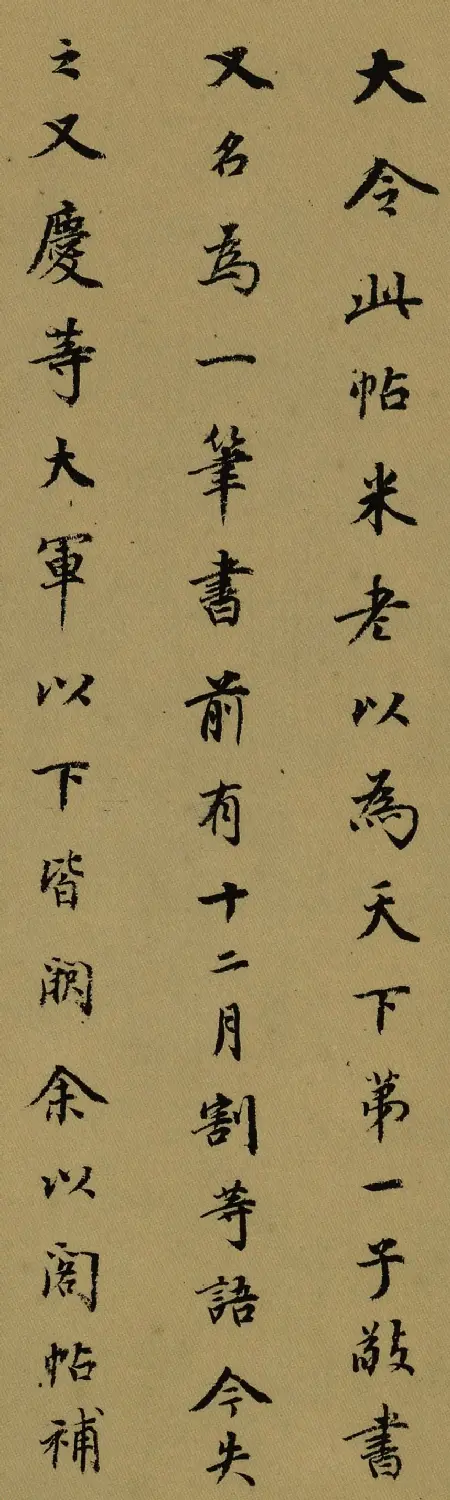 大令此帖米老以為天下第一子敬書
又名為一筆書前有十二月割等語今失
之又慶等大軍以下皆闕余以閣帖補